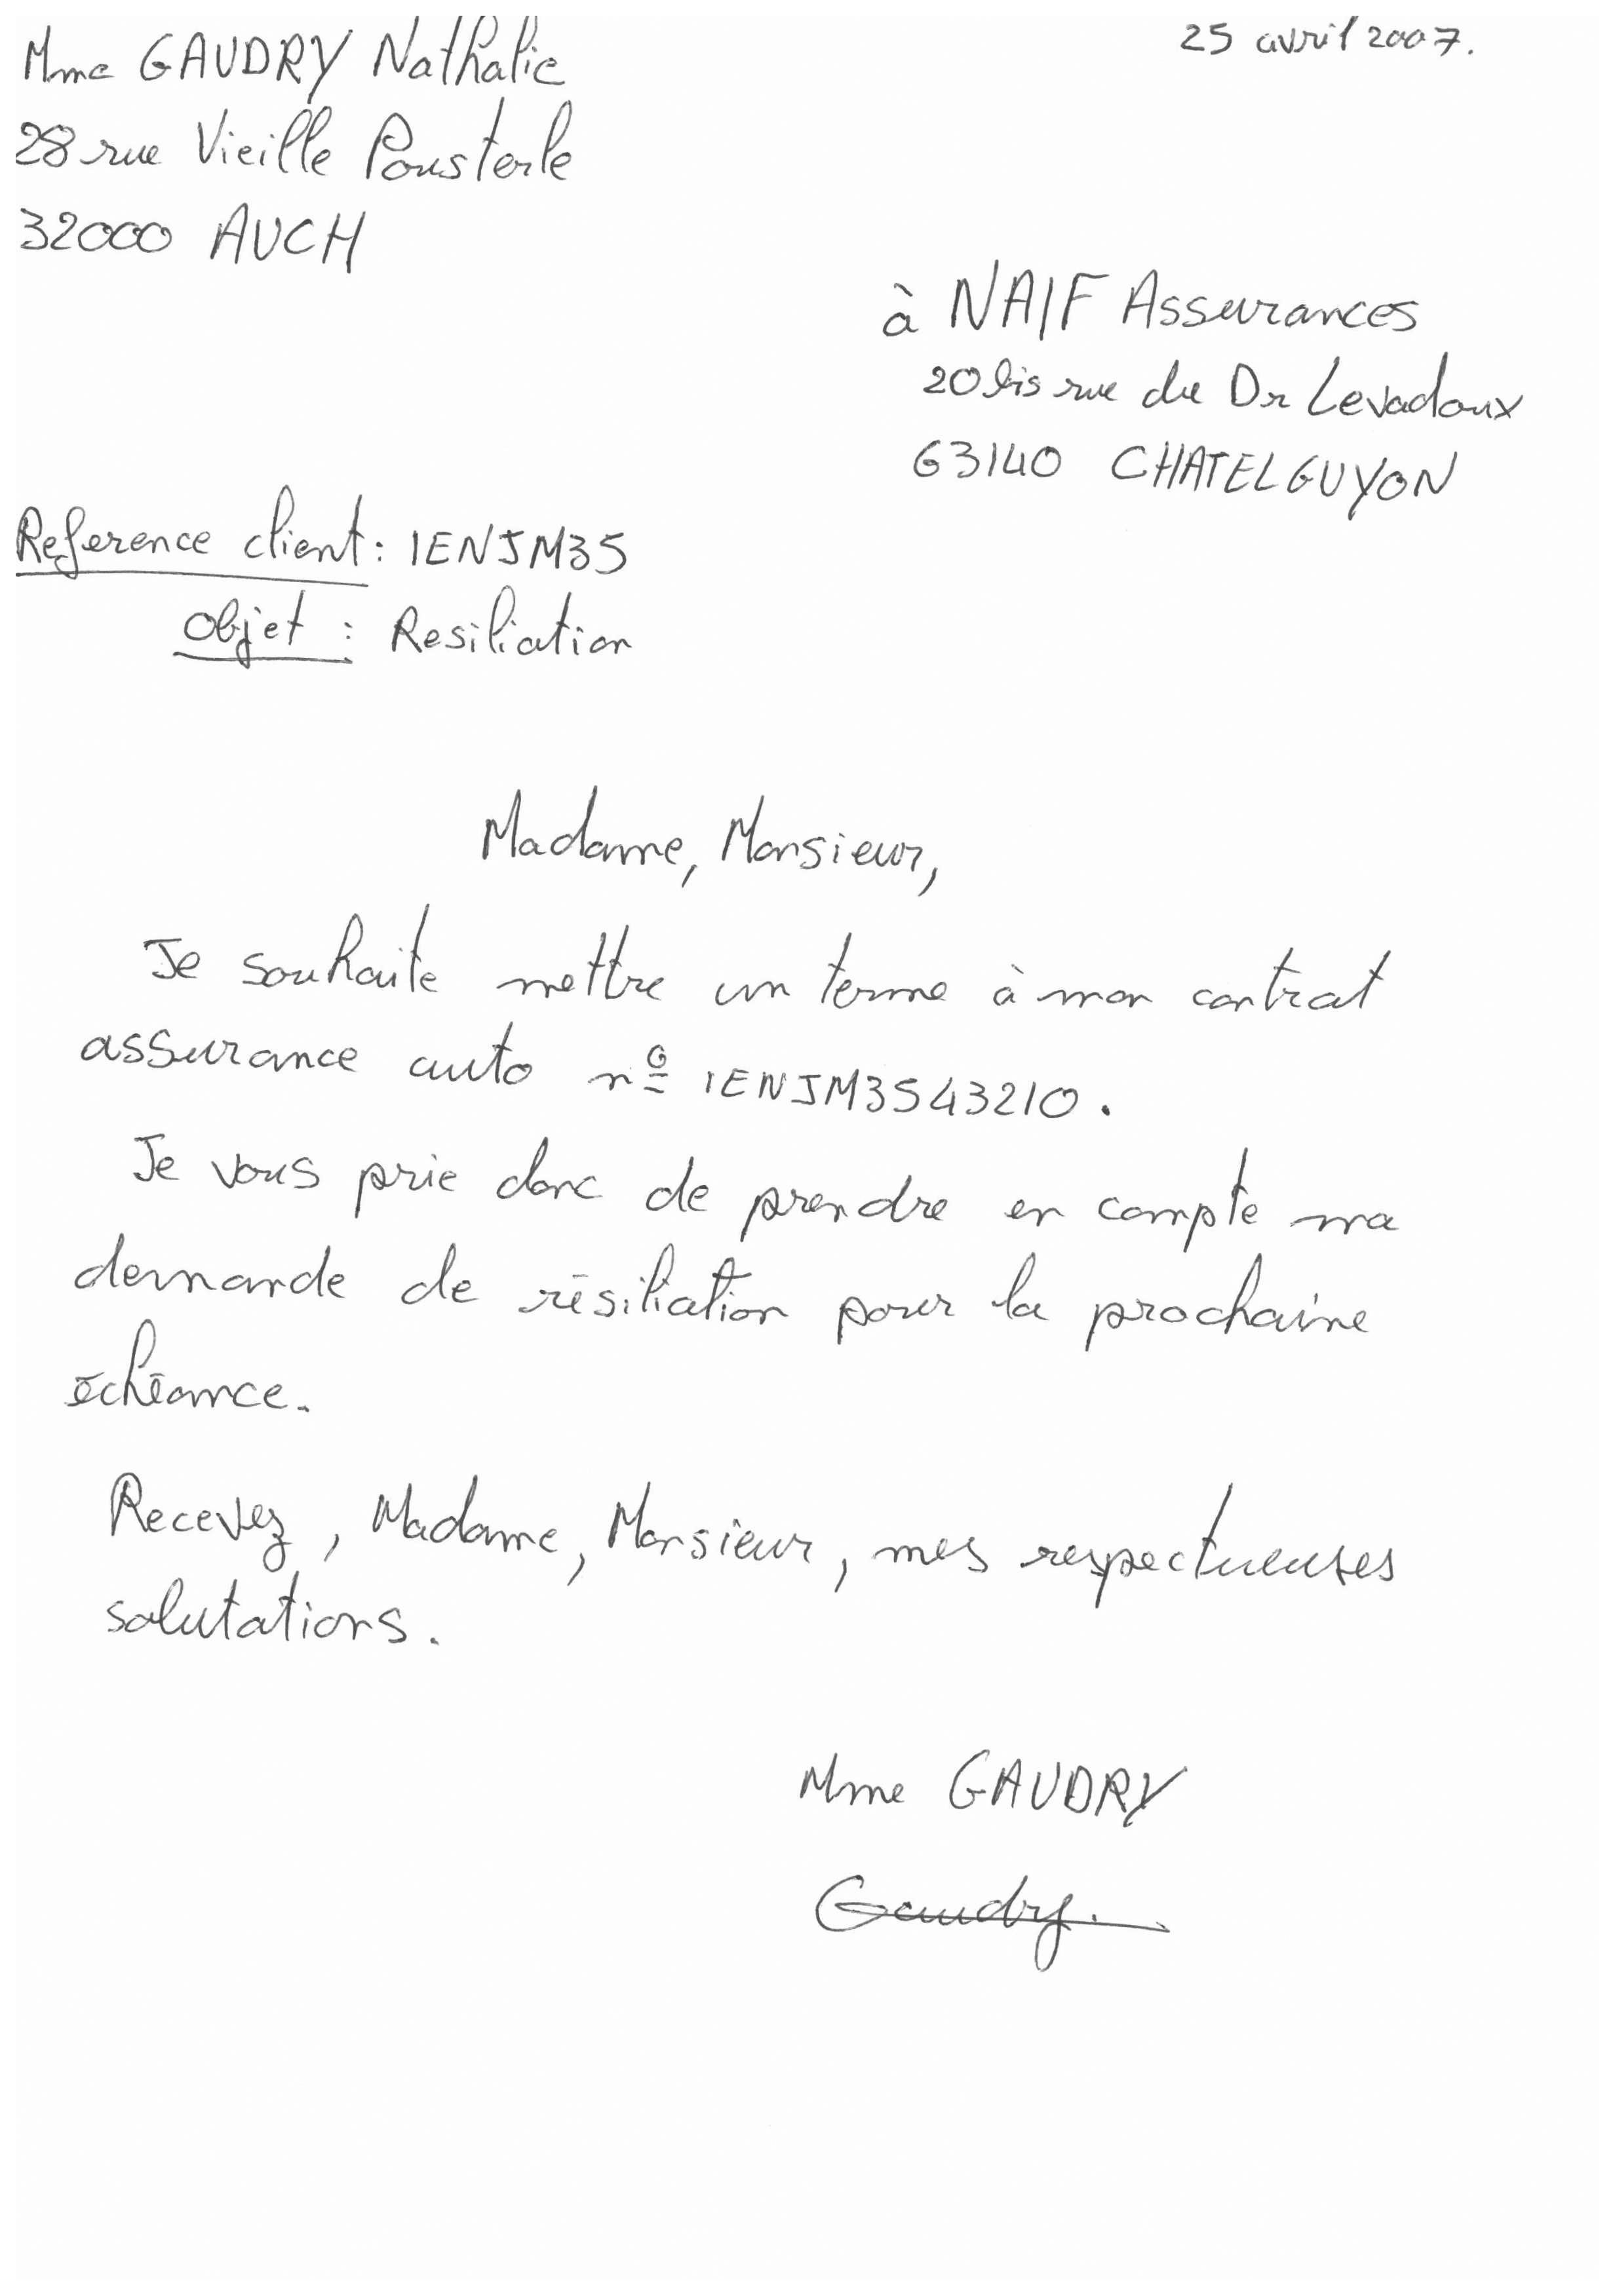 Mme GAUDRY Nathalie
28 rue Vieille Pousterle
32000 AUCH
25 avril 2007.
à NAIF Assurances
20 bis rue du Dr Levadoux
63140 CHATELGUYON
Reference client : IENJM35
Objet : Resiliation
Madame, Monsieur,
Je souhaite mettre un terme à mon contrat
assurance auto nº IENJM3543210.
Je vous prie donc de prendre en compte ma
demande de résiliation pour la prochaine
échéance.
Recevez, Madame, Monsieur, mes respectueuses
salutations.
Mme GAUDRY
Gaudry.